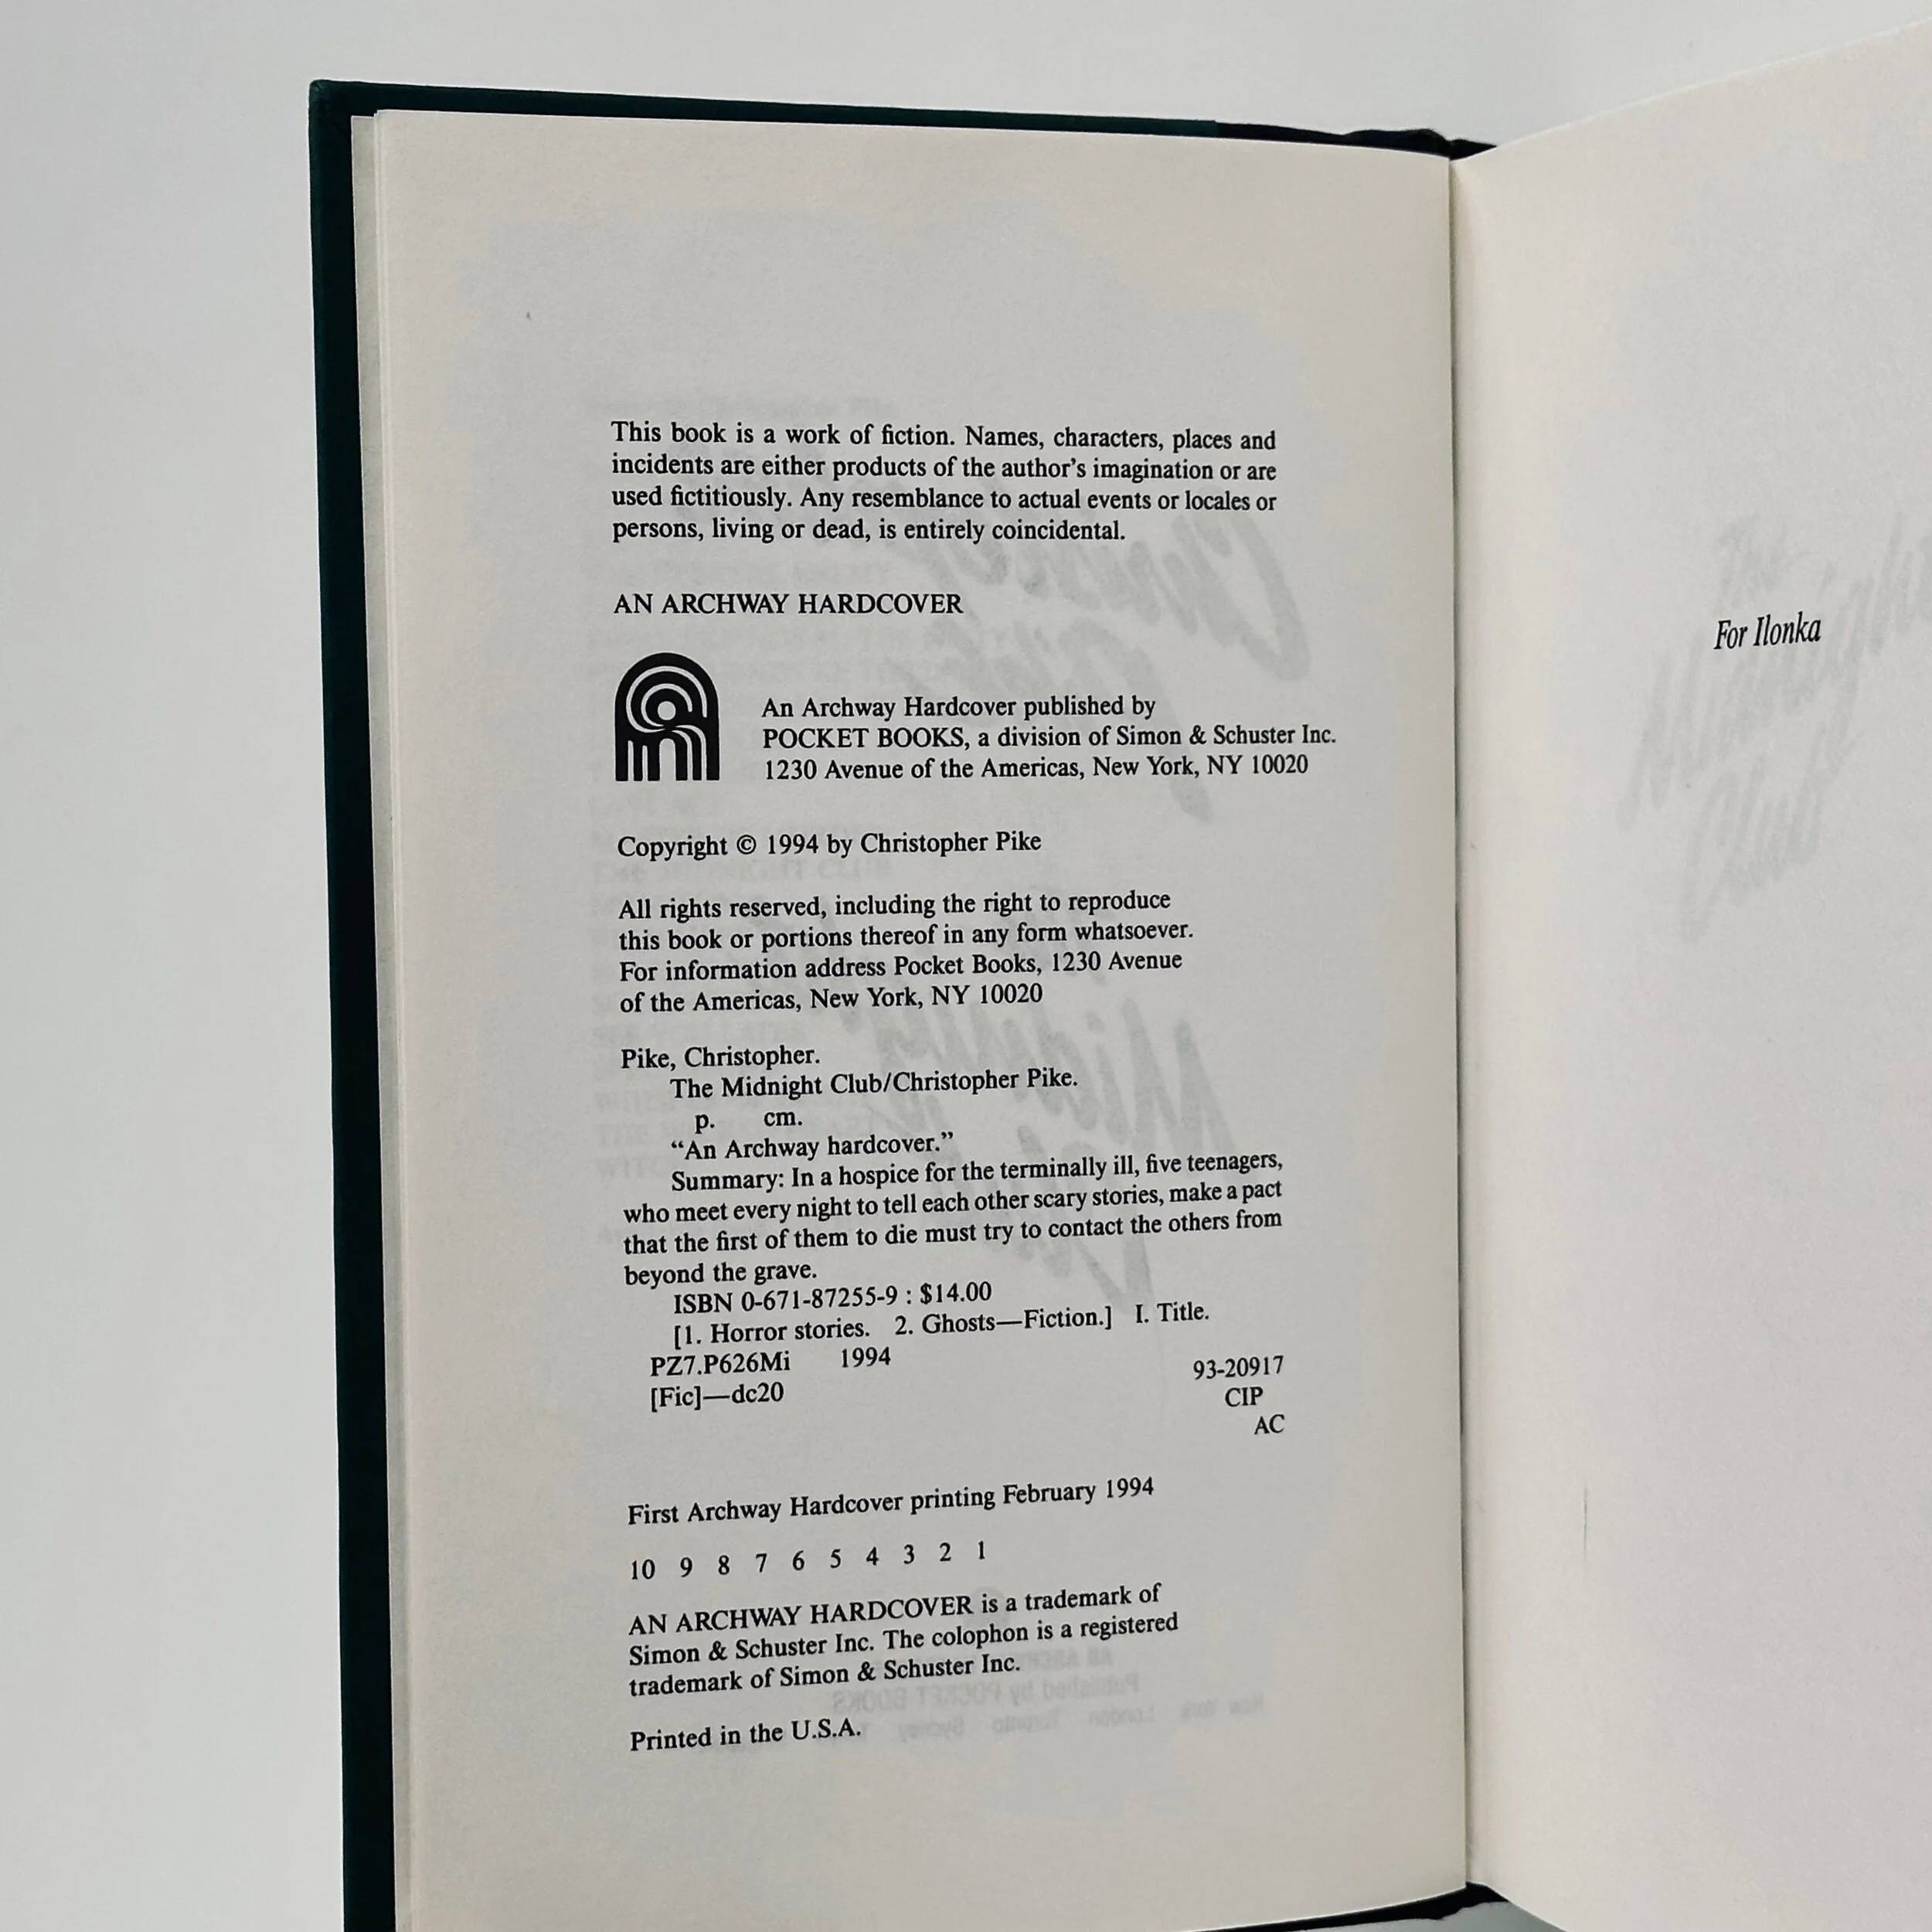 This book is a work of fiction. Names, characters, places and
incidents are either products of the author's imagination or are
used fictitiously. Any resemblance to actual events or locales or
persons, living or dead, is entirely coincidental.
AN ARCHWAY HARDCOVER
An Archway Hardcover published by
POCKET BOOKS, a division of Simon & Schuster Inc.
1230 Avenue of the Americas, New York, NY 10020
Copyright © 1994 by Christopher Pike
All rights reserved, including the right to reproduce
this book or portions thereof in any form whatsoever.
For information address Pocket Books, 1230 Avenue
of the Americas, New York, NY 10020
Pike, Christopher.
The Midnight Club/Christopher Pike.
p. cm.
“An Archway hardcover.”
Summary: In a hospice for the terminally ill, five teenagers,
who meet every night to tell each other scary stories, make a pact
that the first of them to die must try to contact the others from
beyond the grave.
ISBN 0-671-87255-9 : $14.00
[1. Horror stories. 2. Ghosts—Fiction.] I. Title.
PZ7.P626Mi 1994
[Fic]—dc20
93-20917
CIP
AC
First Archway Hardcover printing February 1994
10 9 8 7 6 5 4 3 2 1
AN ARCHWAY HARDCOVER is a trademark of
Simon & Schuster Inc. The colophon is a registered
trademark of Simon & Schuster Inc.
Printed in the U.S.A.
For Ilonka